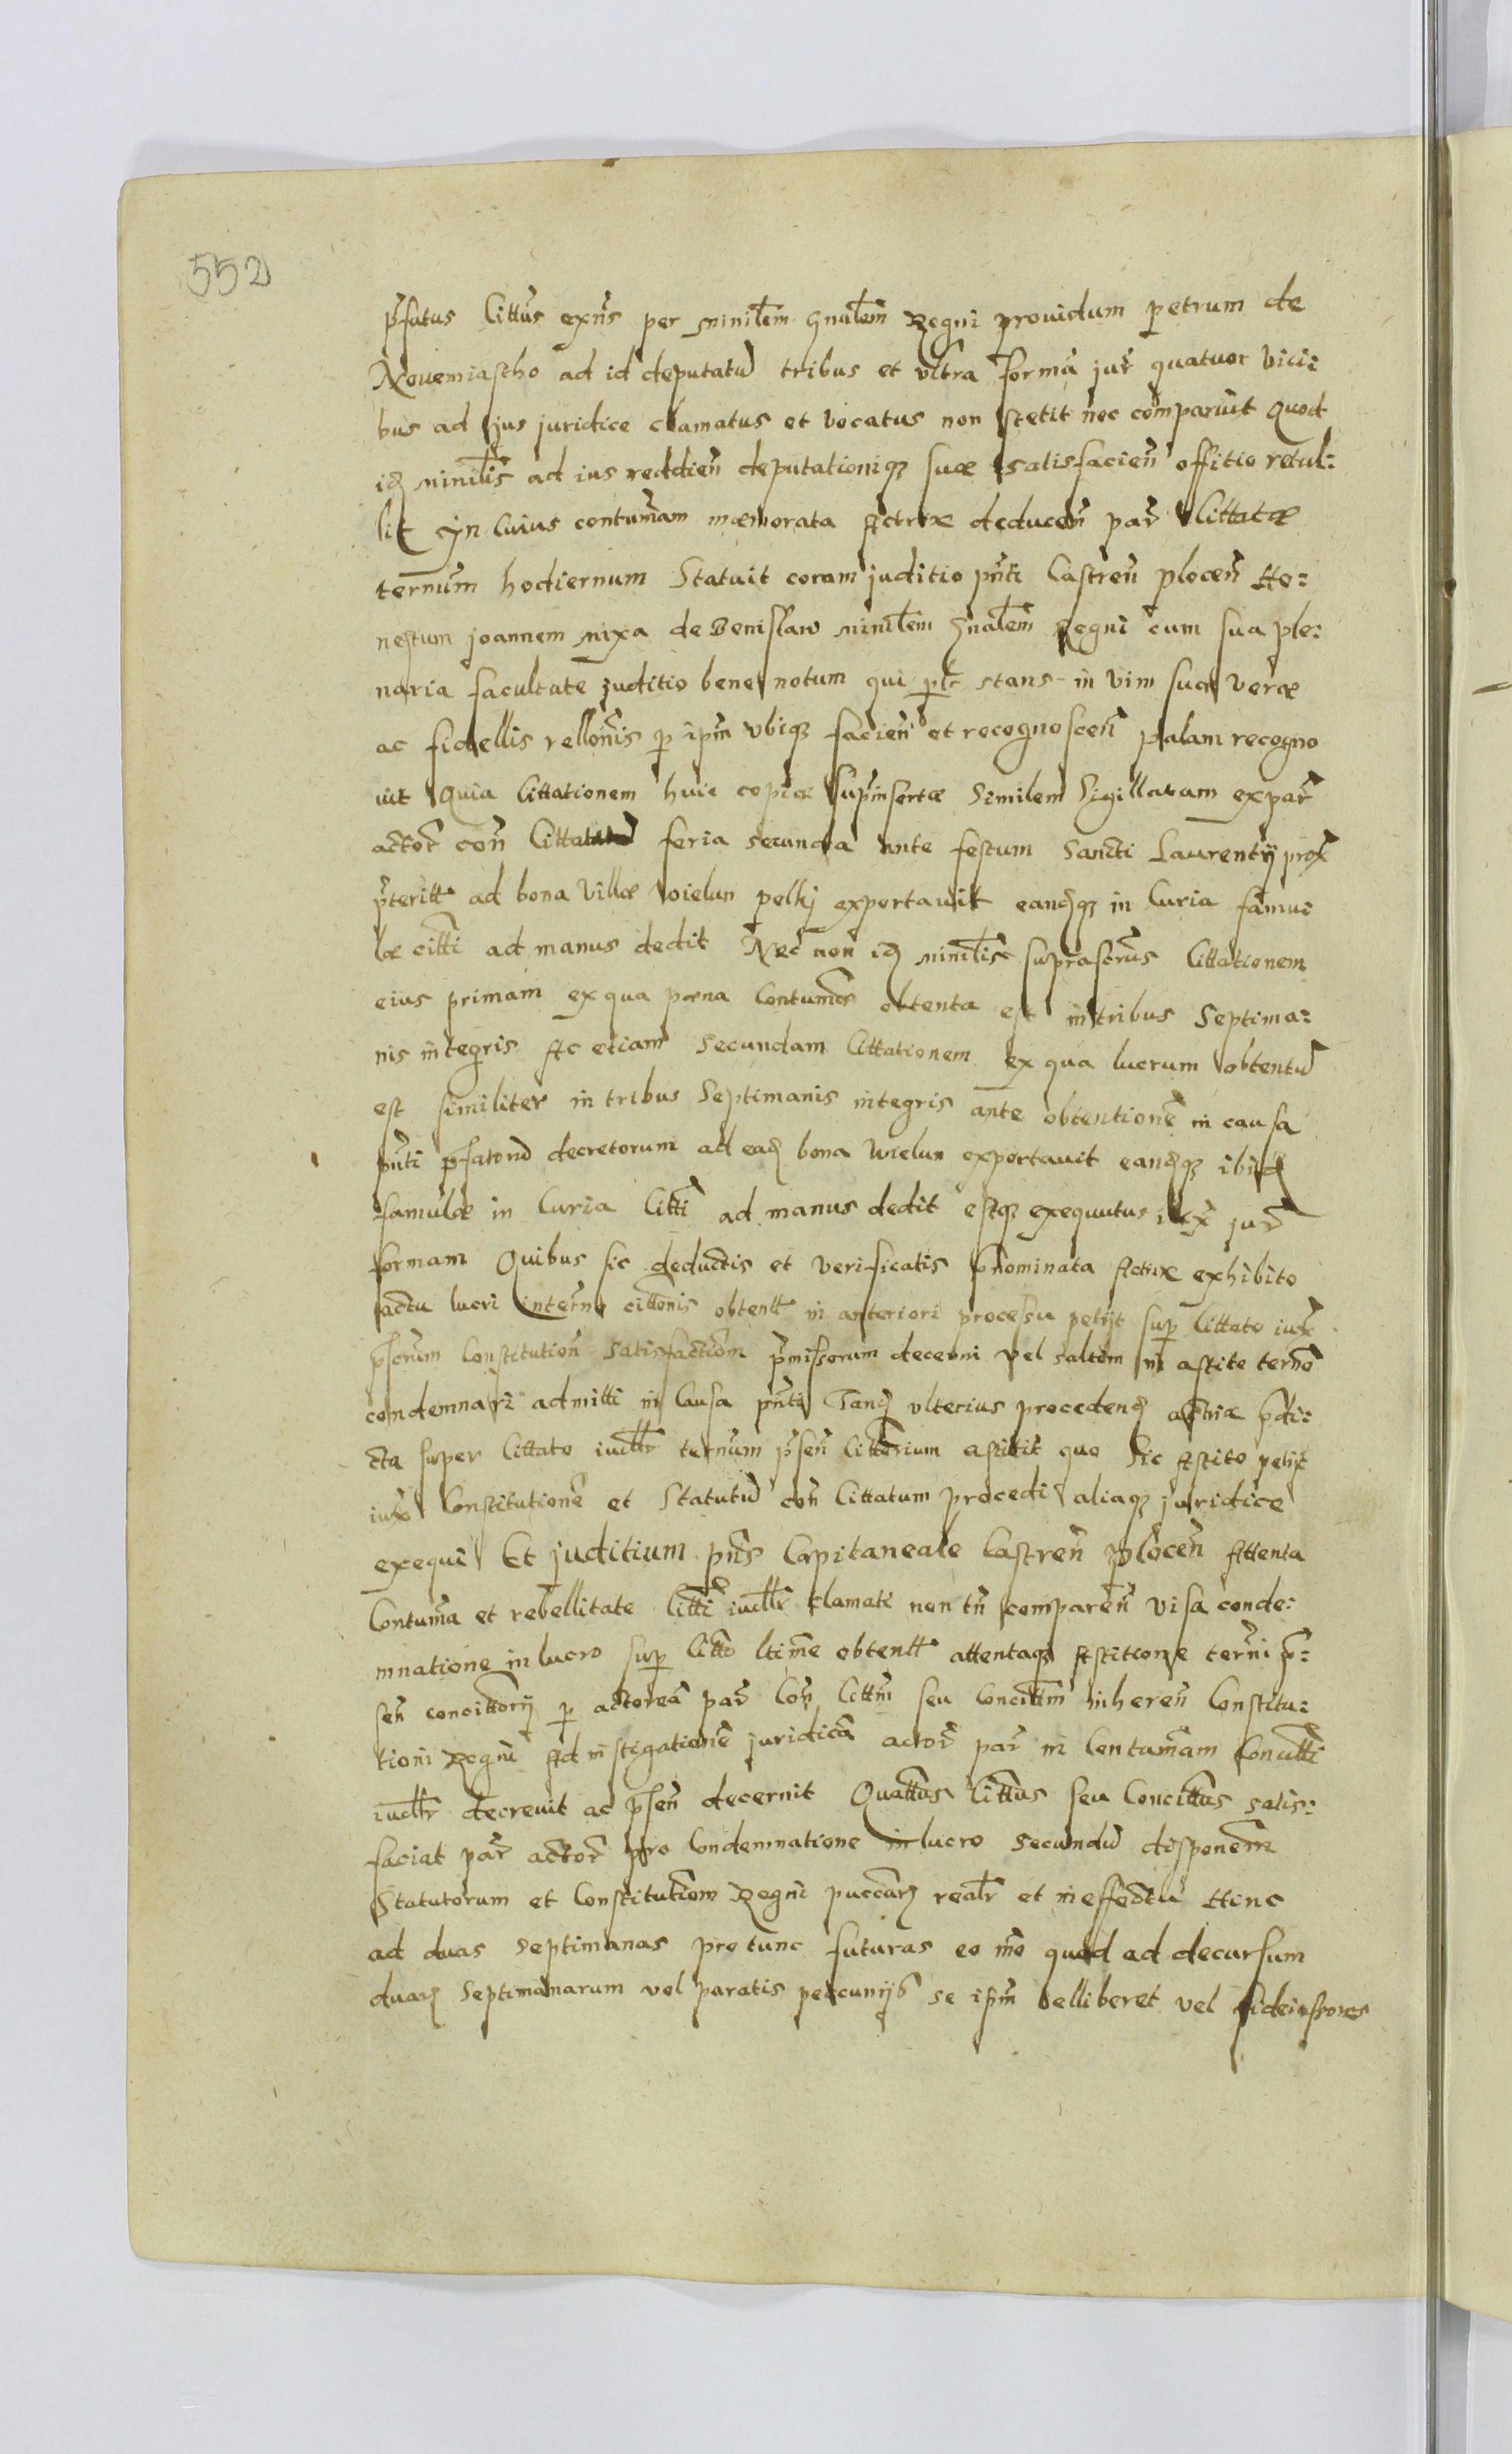 552
p̃fatus Cittũs exñs per Minilẽm Gnalẽm Regni prouidum petrum de
Novemiascho ad id deputatũ tribus et vltra formã jur̃ quatuor vici:
bus ad jus juridice clamatus et vocatus non stetit nec comparuit Quod
idẽ Minilĩs ad ius reddieñ deputationiqȝ suæ satisfacieñ offitio retul:
lit Jn Cuius contumãm memorata Actrix deduceñ par̃ Cittatæ
ternũm hodiernum Statuit coram juditio pñti Castreñ ploceñ Ho:
nestum joannem Mixa de Benisław Minilẽm Gnalẽm Regni cum sua ple:
naria facultate juditio bene notum qui plr̃ stans in vim suæ veræ
ac fidellis rellõnis p ipm̃ vbiqȝ facieñ et recognosceñ palam recogno
uit Quia Cittationem huic copiæ sup̃insertæ Similem Sigillatam ex par̃
actor̃ coñ Cittatũ feria secunda ante festum Sancti Laurentij prox̃
p̃teritt̃ ad bona Villæ Wielun pelhj exportauit eandẽqȝ in Curia famu
læ citti ad manus dedit Nec non idẽ minilĩs suprascrũs Cittationem
eius primam ex qua pæna Contumæ obtenta est in tribus Septima:
nis integris Ac etiam Secundam Cittationem ex qua lucrum obtentũ
est similiter in tribus Septimanis integris ante obtentionẽ in causa
pñti p̃fatorũ decretorum ad eadẽ bona Wielun exportauit eandẽqȝ ibidẽ
famulæ in Curia Citti ad manus dedit estqȝ exequutus iuxã jur̃
formam Quibus sic deductis et verificatis p̃nominata Actrix exhibito
actu lucri in terño cittõnis obtentt̃ in anteriori processu petijt sup Cittato iuxã
p̃scrũm Constitutioñ Satisfactiõm p̃missorum decerni vel saltem in astito ternõ
condemnari admitti in Causa pñti Tandẽ vlterius procedendẽ actrix p̃di:
cta super Cittato iudllr̃ ternũm p̃señ Cittorium astitit quo Sic Astito petijt
iuxã Constitutionẽ et Statutũ coñ Cittatum procedi aliaqȝ juridice
exequi Et juditium pñs Capitaneale Castreñ ploceñ Attenta
Contumã et rebellitate Citti iudllr̃ clamati non tñ compareñ visa conde:
mnatione in lucro sup Citto ltime obtentt̃ attentaqȝ Astitione terñi p̃:
señ concittorij p actoreã par̃ Coñ Cittm̃ seu Concittm̃ inhereñ Constitu:
tioni Regni Ad instigationẽ juridicã actor̃ par̃ in Contumãm Concitti
iudllr̃ decreuit ac p̃señ decernit Quattũs Cittũs seu Concittũs satis:
faciat par̃ actor̃ pro Condemnatione in lucro Secundũ disponẽm
Statutorum et Constitutiõm Regni puccãrẽ realr̃ et in effectu Hinc
ad duas Septimanas pro tunc futuras eo mõ quod ad decursum
duarẽ Septimanarum vel paratis peccunijs se ipm̃ belliberet vel fideiussores